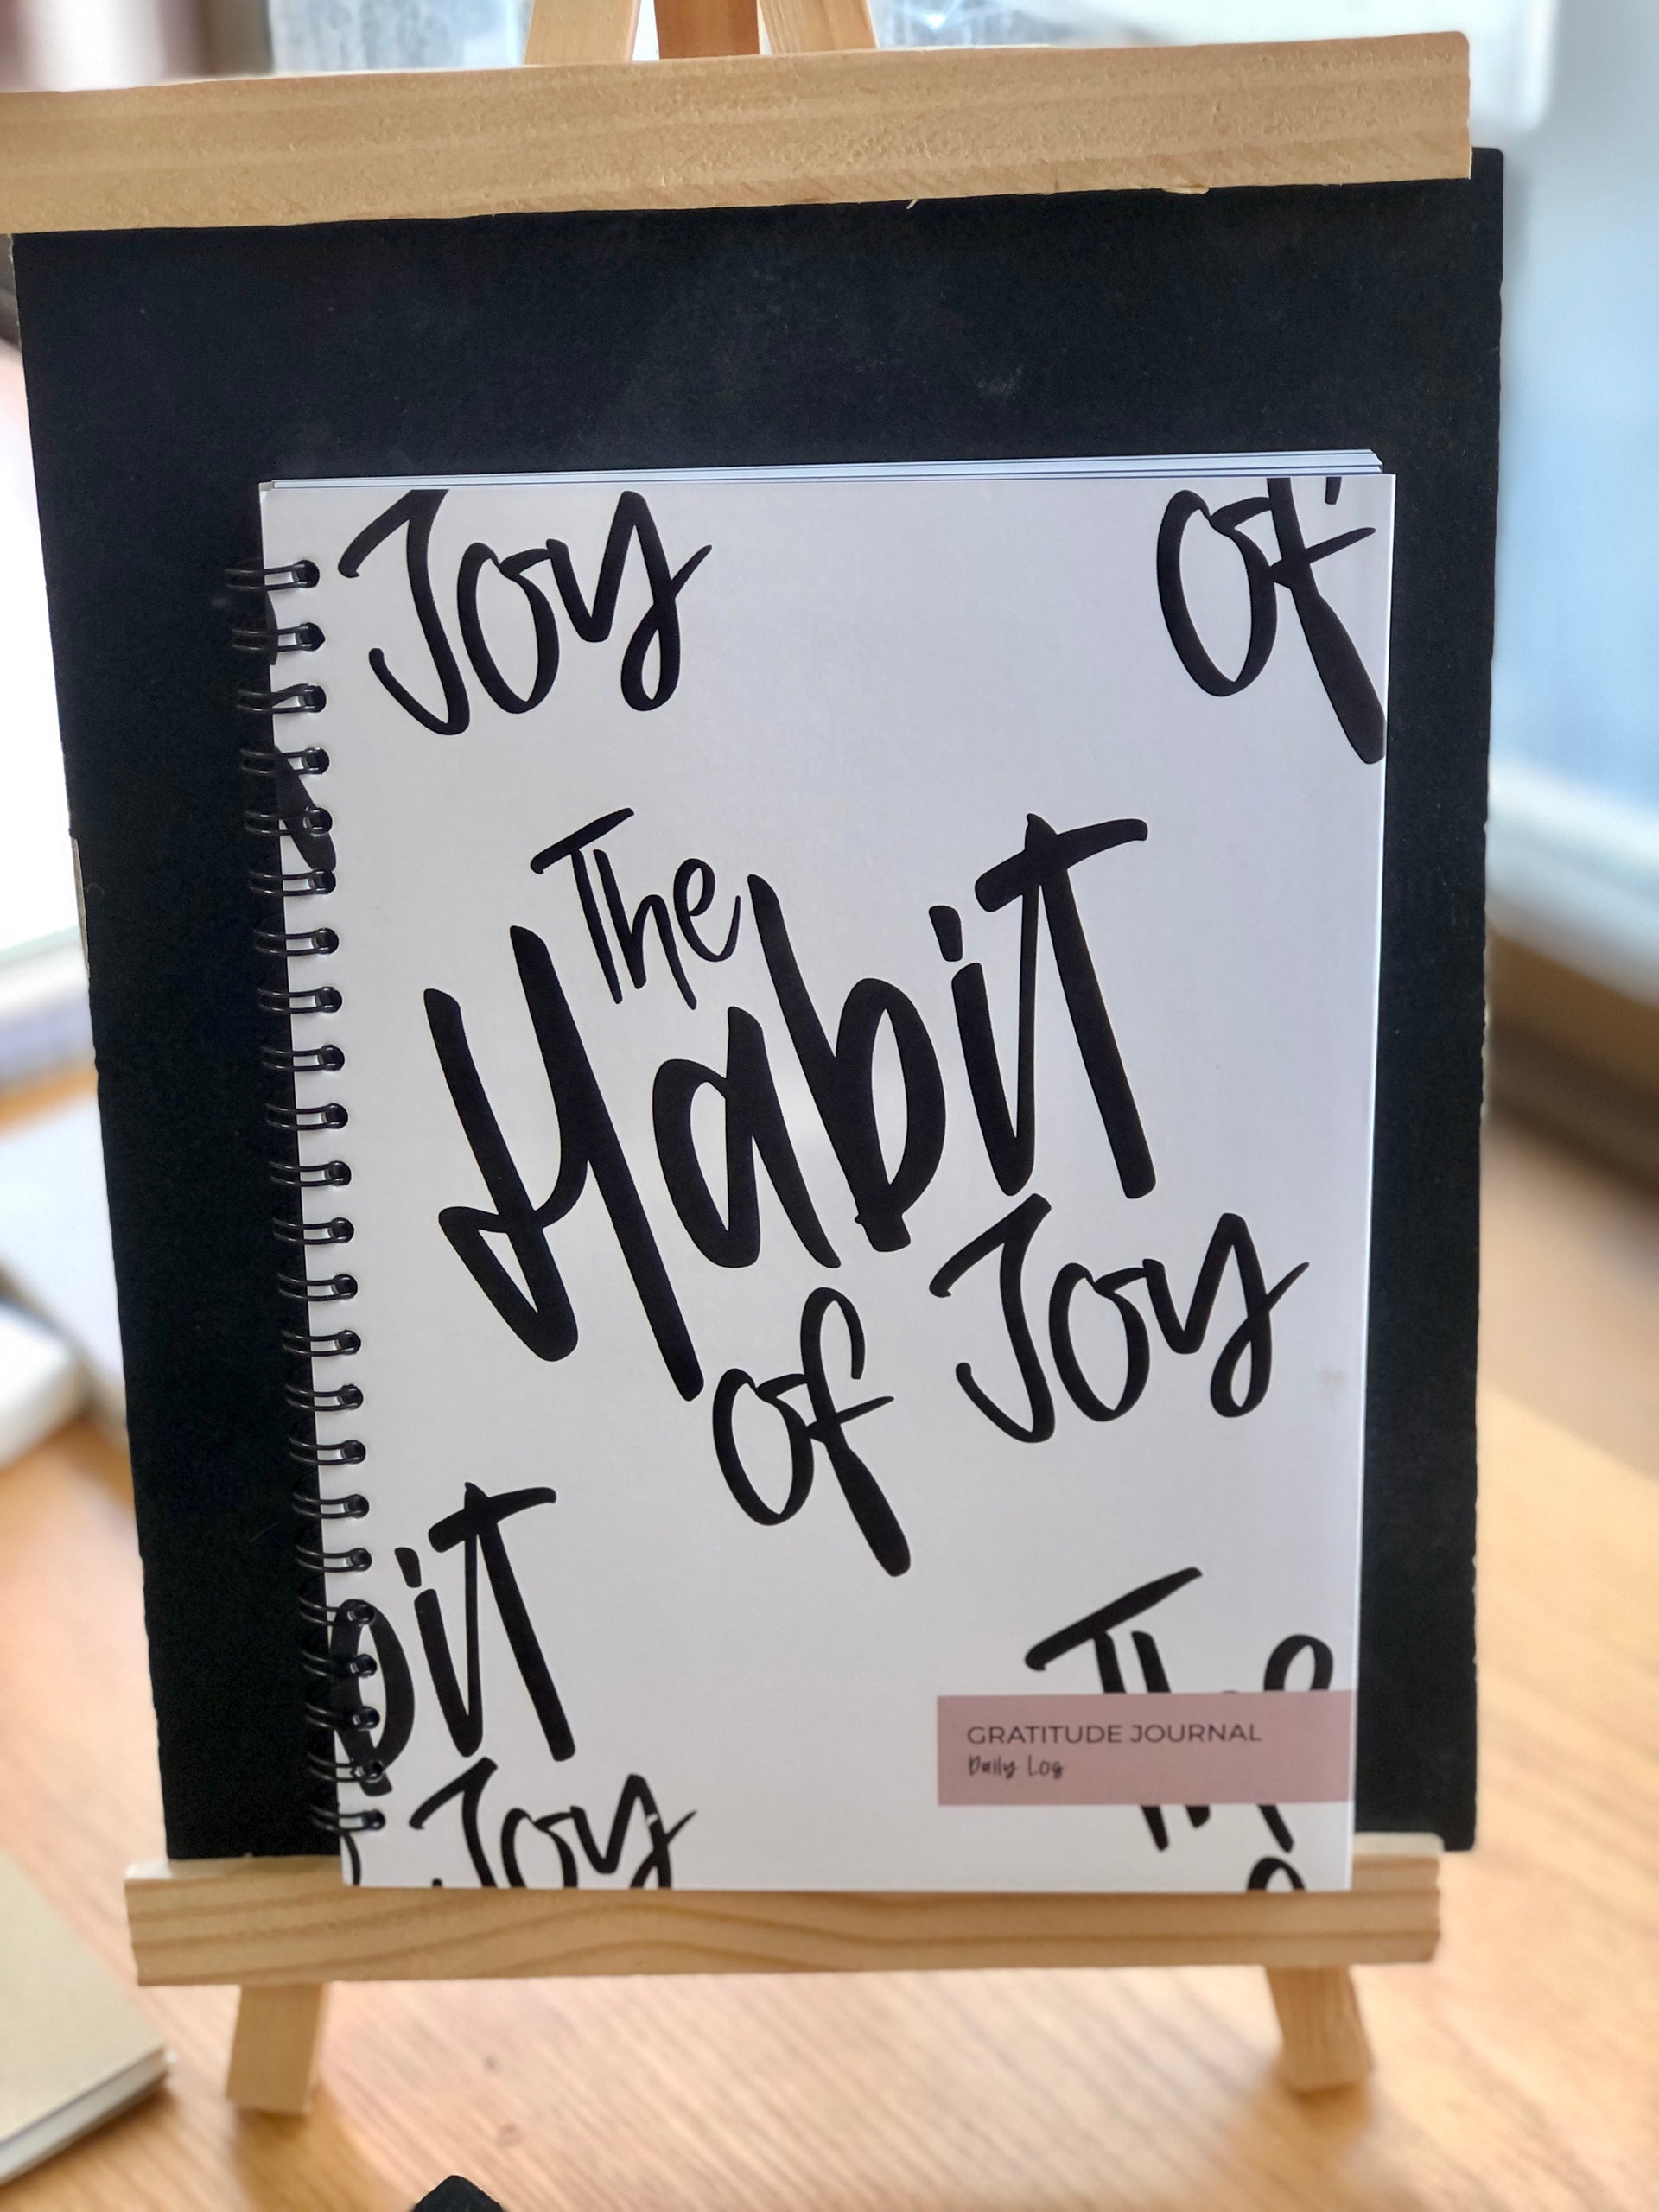 Joy of
The
Habit
of Joy
bit
The
Joy
GRATITUDE JOURNAL
Daily Log